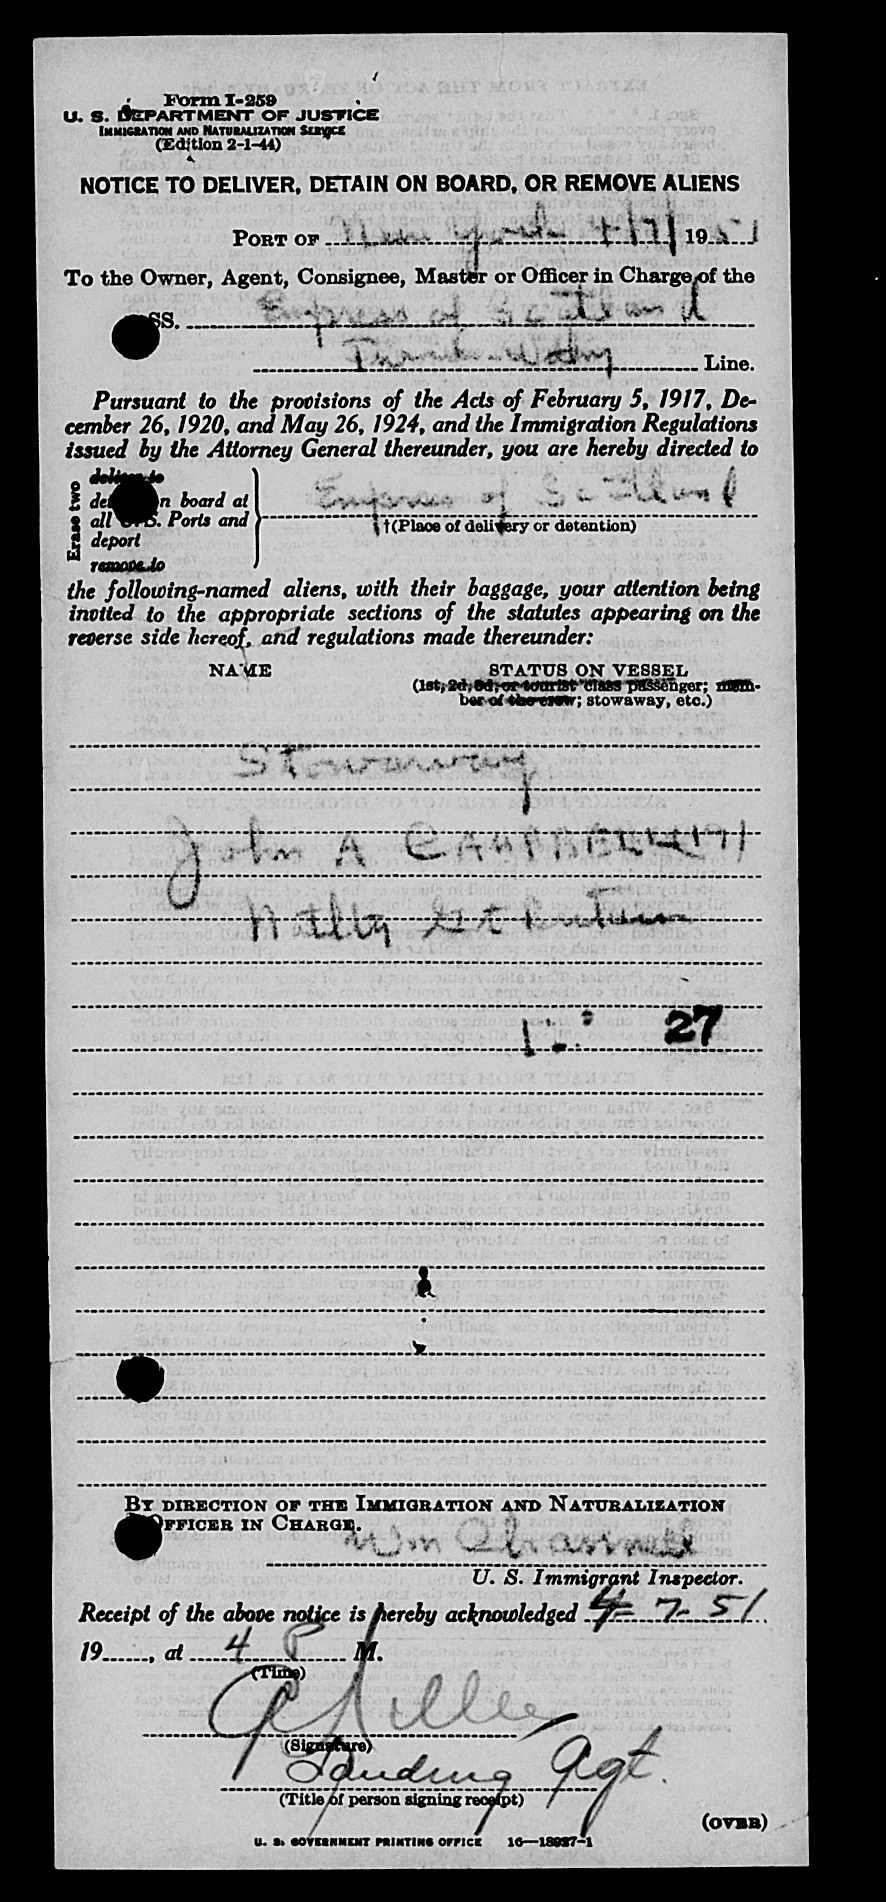 Form I-259
U. S. DEPARTMENT OF JUSTICE
IMMIGRATION AND NATURALIZATION SERVICE
(Edition 2-1-44)
NOTICE TO DELIVER, DETAIN ON BOARD, OR REMOVE ALIENS
PORT OF New York 4/7/ 1951
To the Owner, Agent, Consignee, Master or Officer in Charge of the
SS. Empress of Scotland
Line.
Pursuant to the provisions of the Acts of February 5, 1917, De-
cember 26, 1920, and May 26, 1924, and the Immigration Regulations
issued by the Attorney General thereunder, you are hereby directed to
Erase two
deliver to
detain on board at
all U. S. Ports and
deport
remove to
Empress of Scotland
†(Place of delivery or detention)
the following-named aliens, with their baggage, your attention being
invited to the appropriate sections of the statutes appearing on the
reverse side hereof, and regulations made thereunder:
NAME STATUS ON VESSEL
(1st, 2d, 3d, or tourist class passenger; mem-
ber of the crew; stowaway, etc.)
Stowaway
John A CAMPBELL
Natlty Gt Britain
27
BY DIRECTION OF THE IMMIGRATION AND NATURALIZATION
OFFICER IN CHARGE.
Wm
U. S. Immigrant Inspector.
Receipt of the above notice is hereby acknowledged 4-7-51
19......, at 4 P M.
(Time)
(Signature)
Landing Agt.
(Title of person signing receipt)
(OVER)
U. S. GOVERNMENT PRINTING OFFICE 16—18927-1